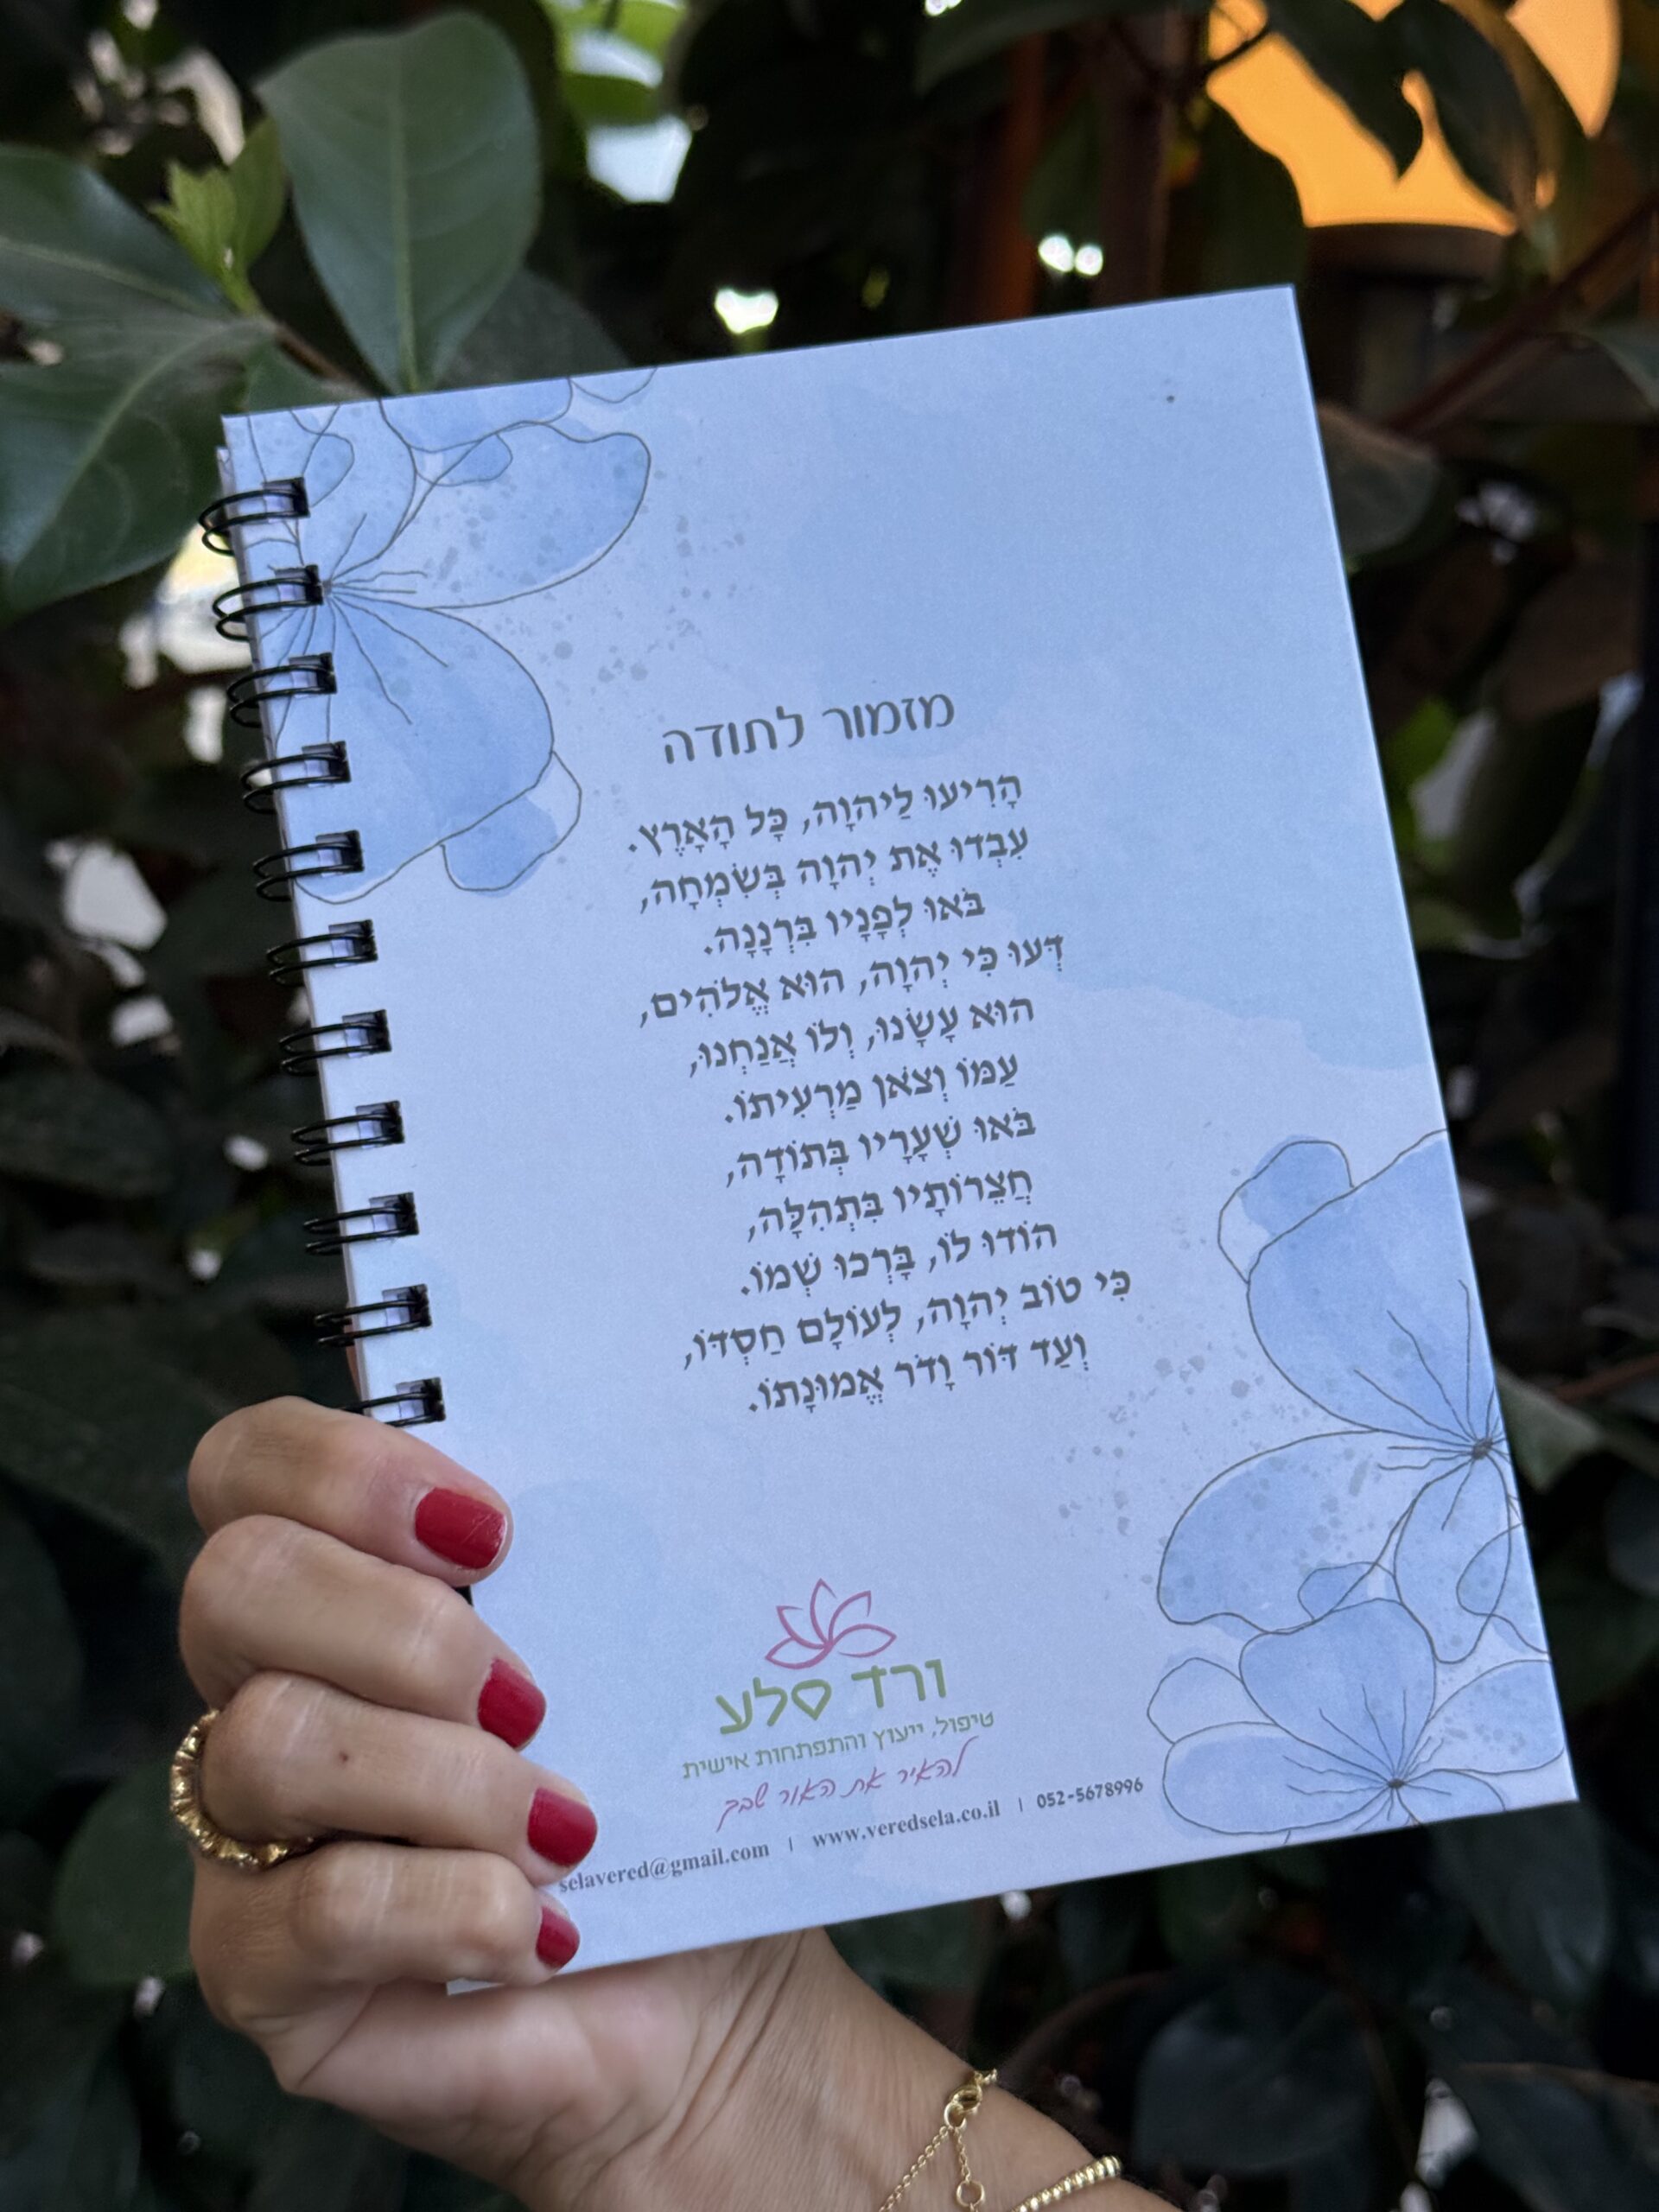 מזמור לתודה
הָרִיעוּ לַיהוָה, כָּל הָאָרֶץ.
עִבְדוּ אֶת יְהוָה בְּשִׂמְחָה,
בֹּאוּ לְפָנָיו בִּרְנָנָה.
דְּעוּ כִּי יְהוָה, הוּא אֱלֹהִים,
הוּא עָשָׂנוּ, וְלוֹ אֲנַחְנוּ,
עַמּוֹ וְצֹאן מַרְעִיתוֹ.
בֹּאוּ שְׁעָרָיו בְּתוֹדָה,
חֲצֵרוֹתָיו בִּתְהִלָּה,
הוֹדוּ לוֹ, בָּרְכוּ שְׁמוֹ.
כִּי טוֹב יְהוָה, לְעוֹלָם חַסְדּוֹ,
וְעַד דּוֹר וָדֹר אֱמוּנָתוֹ.
ורד סלע
טיפול, ייעוץ והתפתחות אישית
להאיר את האור שבך
selavered@gmail.com | www.veredsela.co.il | 052-5678996